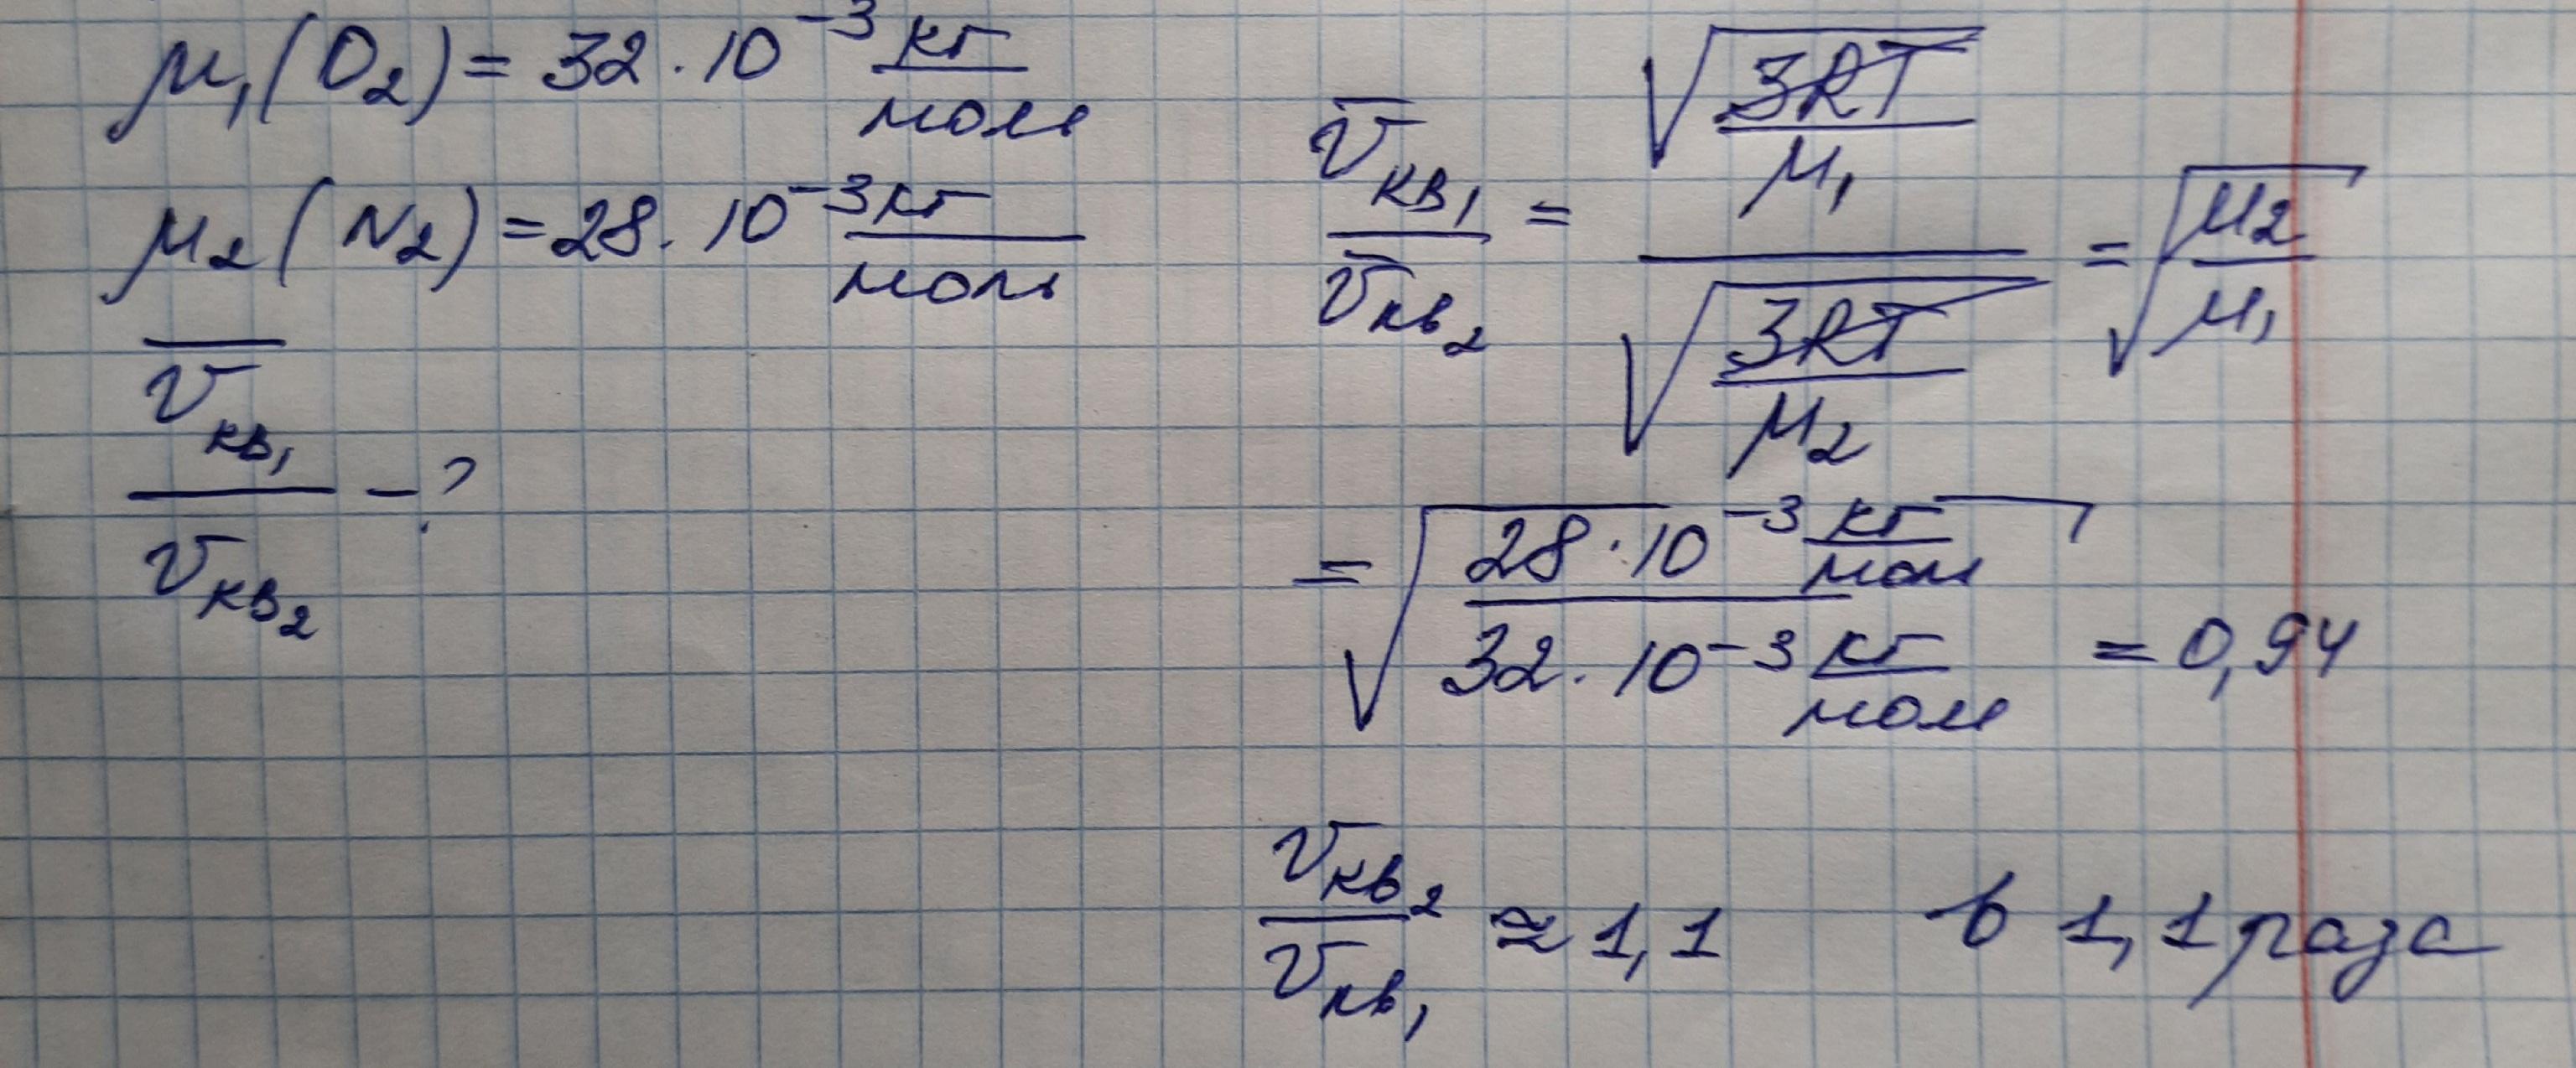 μ₁(O₂) = 32 · 10⁻³ кг/моль
μ₂(N₂) = 28 · 10⁻³ кг/моль
v̅кв₁/v̅кв₂ - ?
v̅кв₁/v̅кв₂ = √(3RT/μ₁)/√(3RT/μ₂) = √(μ₂/μ₁)
= √(28 · 10⁻³ кг/моль / 32 · 10⁻³ кг/моль) = 0,94
vкв₂/vкв₁ ≈ 1,1 в 1,1 раза